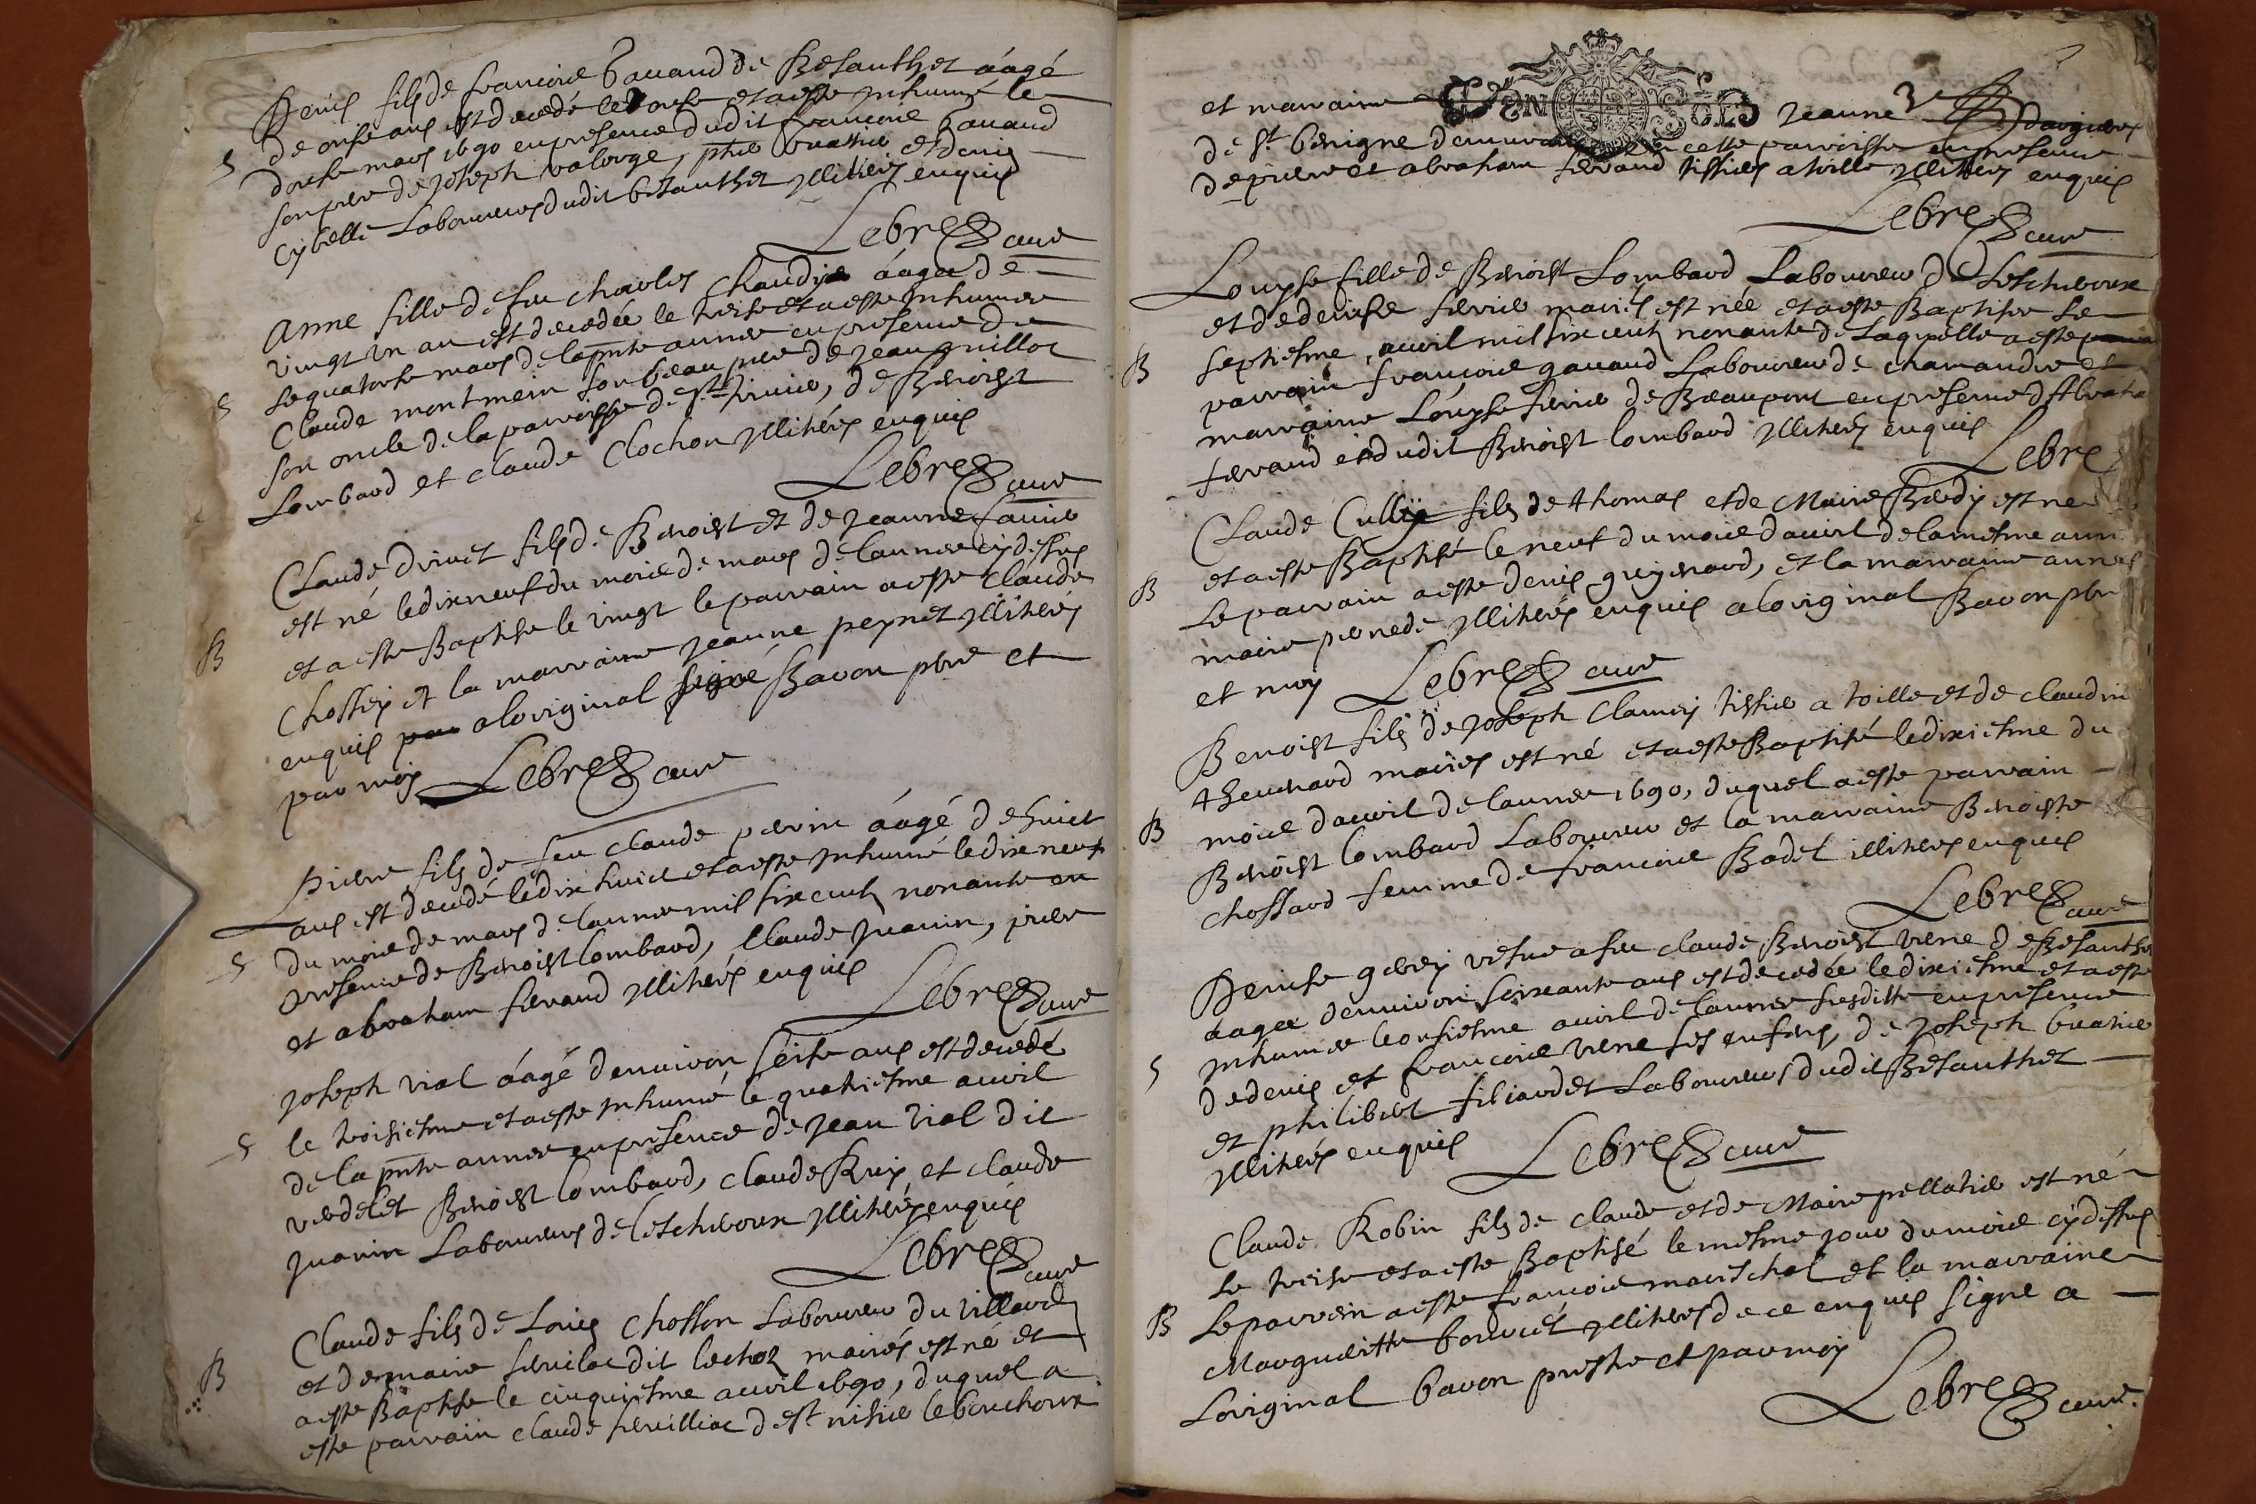 Denis fils de francois bavand de Besanthet aagé
de onse ans est decedé le onse et a este Inhumé le
S
douse mars 1690 en presence dudit francois bavand
son pere de Joseph valorge, phle buatier et denis
Cybelle Laboureurs dudit besanthet Illiterés enquis
Lebre cure
Anne fille de feu charles chaudije aagee de
vingt un an est decedée le treise et a este Inhumee
S
le quatorse mars de la pnte annee en presence de
Claude montmein son beau pere de Jean guillot
son oncle de la paroisse de st trivier, de Benoist
Lombard et claude Clochon Illiterés enquis
Lebre cure
Claude drivet fils de Benoist et de Jeanne
est né le dix neuf du mois de mars de lannee cy dessus
B
et a este Baptise le vingt le parrain a este claude
Chossy et la marraine Jeanne peynet Illiterés
enquis a loriginal signé Bavon pbre et
par moy Lebre cure
Piere fils de feu claude perin aagé de huict
ans est decedé le dix huict et a este Inhumé le dix neuf
S
du mois de mars de lannee mil six cent nonante en
presence de Benoist lombard, Claude Juanin, piere
et abraham fierand Illiterés enquis
Lebre cure
Joseph vial aagé denviron seise ans est decedé
le troisiesme et a este Inhumé le quatriesme avril
S
de la pnte annee en presence de Jean vial dit
verdelet Benoist lombard, claude Ruy et claude
Juanin Laboureurs de lescheroux Illiterés enquis
Lebre cure
Claude fils de Louis Chosson Laboureur du villard
B
et de maire dit mariés est né et
a este Baptise le cinquiesme avril 1690, duquel a
este parrain claude de st nisier le bouchoux
et marraine Jeanne
de st benigne cette paroisse en presence
de piere et abraham fierand tissiers a toille Illiterés enquis
Lebre cure
Louyse fille de Benoist Lombard Laboureur de Lescheroux
et de denise mariés est née et a este Baptisee le
B
septiesme avril mil six cent nonante de Laquelle a este
parrain francois gavand Laboureur de chamandre et
marraine Louyse de Beaupont en presence d'Abraha
fierand et dudit Benoist lombard Illiterés enquis
Lebre
Claude Cullÿ fils de thomas et de Maire Berdy est né
et a este Baptisé le neuf du mois davril de la mesme ann
B
Le parrain a este denis guyenard, et la marraine anne
maire pernede Illiterés enquis a loriginal Bavon pbr
et moy Lebre cure
Benoist fils de Joseph Clamy tissier a toille et de claudin
thevenard mariés est né et a este Baptisé le dixiesme du
B
mois davril de lannee 1690, duquel a este parrain
Benoist lombard Laboureur et la marraine Benoiste
chossard femme de francois Badel illiterés enquis
Lebre cure
Denise gebey vefue a feu claude Benoist viene de Besanthe
aagee denviron soixante ans est decedée le dixiesme et a este
S
Inhumee le onsiesme avril de lannee susditte en presence
de denis et francois viene ses enfans, de Joseph buatier
et philibert filiardet Laboureurs dudit Besanthet
Illiterés enquis
Lebre cure
Claude Robin fils de claude et de Maire pellatier est né
Le treise et a este Baptisé le mesme jour du mois cy dessus
B
Le parrein a este francois mareschal et la marraine
Margueritte bouvet Illiterés de ce enquis signe a
Loriginal bavon prestre et par moy
Lebre cure.